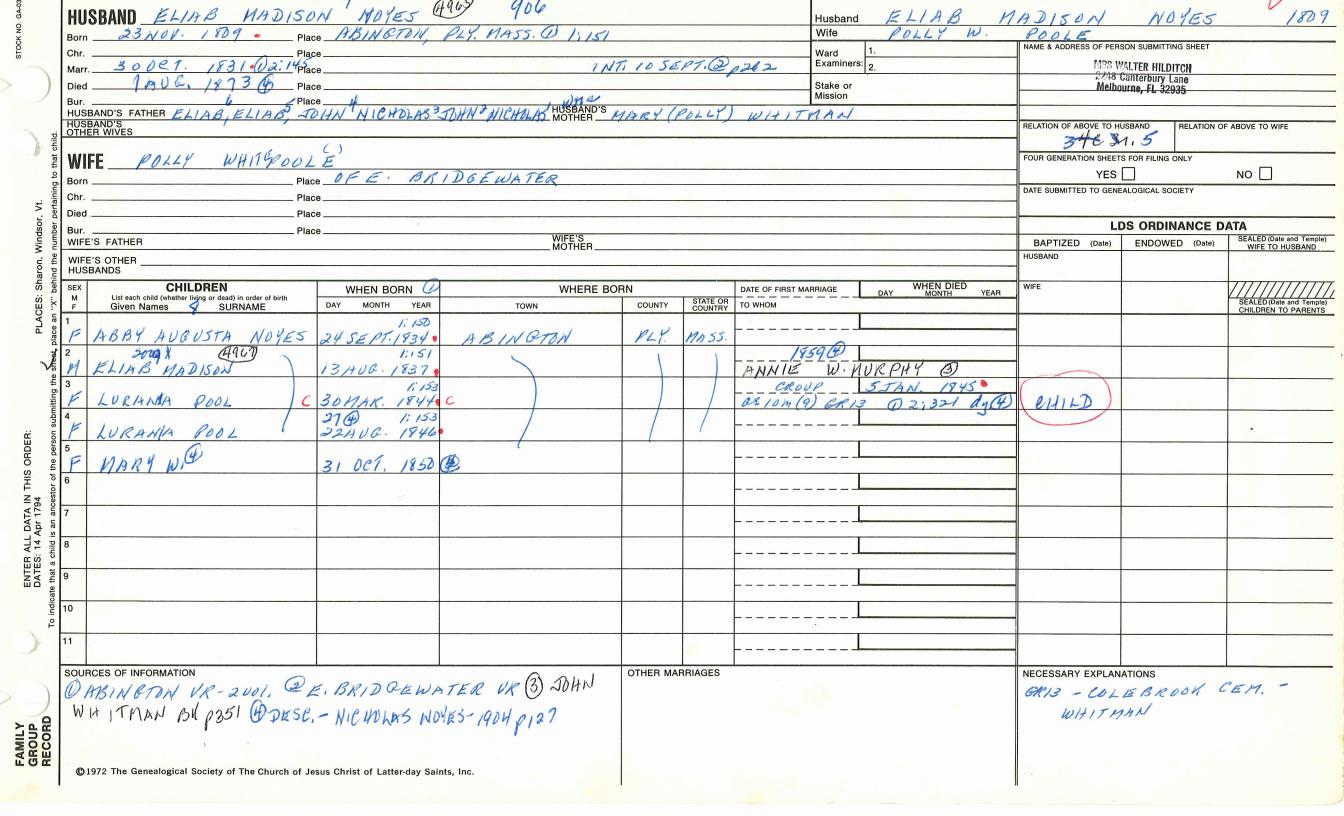 HUSBAND ELIAB MADISON NOYES 4965 906
Husband ELIAB MADISON NOYES 1809
Wife POLLY W. POOLE
Born 23 NOV. 1809 Place ABINGTON, PLY. MASS. ① 1:151
Chr. Place
Marr. 30 OCT. 1831 ① 2:145 Place INT. 10 SEPT. ② p262
Died 1 AUG. 1873 ④ Place
Bur. Place
Ward Examiners: 1.
2.
Stake or Mission
NAME & ADDRESS OF PERSON SUBMITTING SHEET
MRS WALTER HILDITCH
2248 Canterbury Lane
Melbourne, FL 32935
HUSBAND'S FATHER ELIAB,6 ELIAB,5 JOHN4 NICHOLAS3 JOHN2 NICHOLAS1 HUSBAND'S MOTHER MARY (POLLY) WHITMAN
HUSBAND'S OTHER WIVES
RELATION OF ABOVE TO HUSBAND RELATION OF ABOVE TO WIFE
WIFE POLLY WHITE POOLE
FOUR GENERATION SHEETS FOR FILING ONLY
YES NO
Born Place OF E. BRIDGEWATER
Chr. Place
Died Place
Bur. Place
DATE SUBMITTED TO GENEALOGICAL SOCIETY
WIFE'S FATHER WIFE'S MOTHER
WIFE'S OTHER HUSBANDS
LDS ORDINANCE DATA
BAPTIZED (Date) ENDOWED (Date) SEALED (Date and Temple) WIFE TO HUSBAND
HUSBAND
WIFE
SEALED (Date and Temple) CHILDREN TO PARENTS
SEX M F
CHILDREN
List each child (whether living or dead) in order of birth
Given Names SURNAME
WHEN BORN ①
DAY MONTH YEAR
WHERE BORN
TOWN COUNTY STATE OR COUNTRY
DATE OF FIRST MARRIAGE
TO WHOM
WHEN DIED
DAY MONTH YEAR
1 1:150
F ABBY AUGUSTA NOYES 24 SEPT. 1834 ABINGTON PLY. MASS.
2 4967 1:151 1859 ④
M ELIAB MADISON 13 AUG. 1837 ANNIE W. MURPHY ③
3 1:153 CROUP 5 JAN. 1845
F LURANIA POOL C 30 MAR. 1844 C GR13 ① 2:321 dy ④ CHILD
4 27 ④ 1:153
F LURANIA POOL 22 AUG. 1846
5 F MARY W. ④ 31 OCT. 1850 ④
6
7
8
9
10
11
SOURCES OF INFORMATION
① ABINGTON VR-2vol. ② E. BRIDGEWATER VR ③ JOHN
WHITMAN BK p351 ④ DESC.- NICHOLAS NOYES-1904 p127
OTHER MARRIAGES
NECESSARY EXPLANATIONS
GR13 - COLEBROOK CEM. -
WHITMAN
©1972 The Genealogical Society of The Church of Jesus Christ of Latter-day Saints, Inc.
FAMILY GROUP RECORD
ENTER ALL DATA IN THIS ORDER:
DATES: 14 Apr 1794
PLACES: Sharon, Windsor, Vt.
To indicate that a child is an ancestor of the person submitting the sheet, place an "X" behind the number pertaining to that child.
STOCK NO.